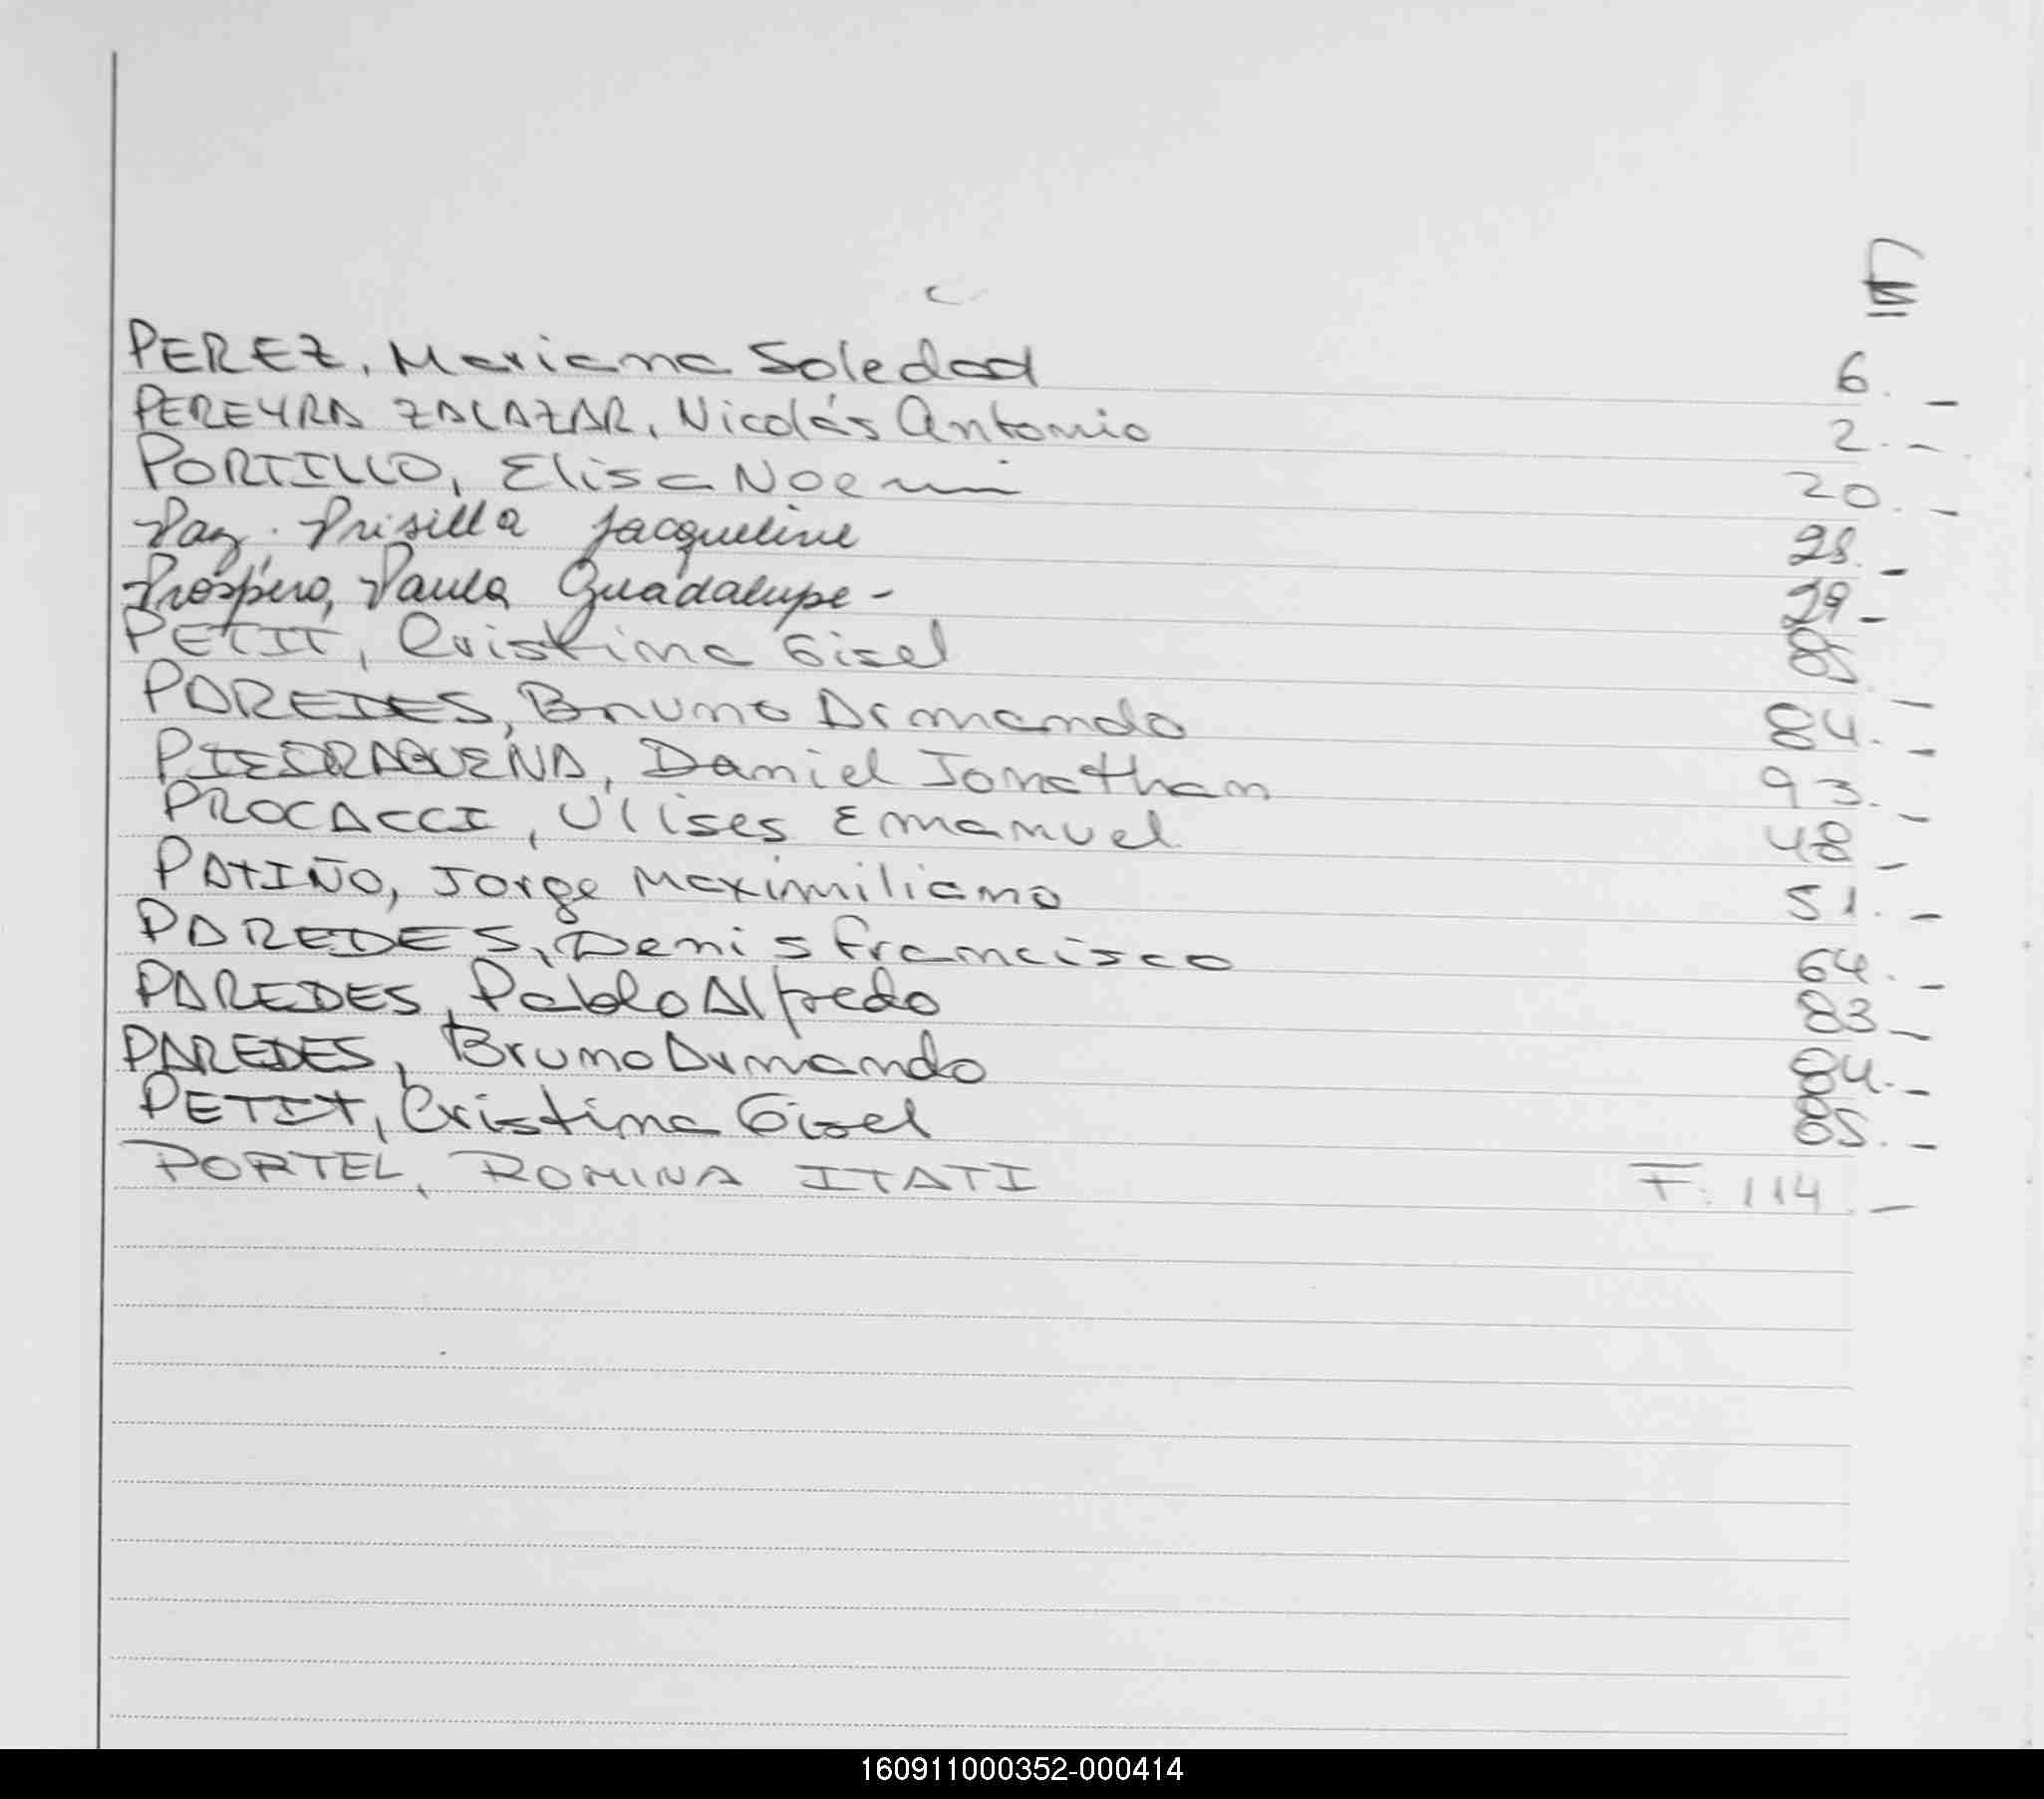 PEREZ, Mariana Soledad 6. -
PEREYRA ZALAZAR, Nicolás Antonio 2. -
PORTILLO, Elisa Noemi 20. -
Paz, Prisilla Jacqueline 28. -
Prospero, Paula Guadalupe - 29 -
PETIT, Cristina Gisel 85 -
PAREDES, Bruno Armando 84. -
PIEDRABUENA, Daniel Jonathan 93. -
PROCACCI, Ulises Emanuel 48 -
PATIÑO, Jorge Maximiliano 51. -
PAREDES, Denis Francisco 64. -
PAREDES, Pablo Alfredo 83 -
PAREDES, Bruno Armando 84. -
PETIT, Cristina Gisel 85. -
PORTEL, ROMINA ITATI F. 114. -
160911000352-000414